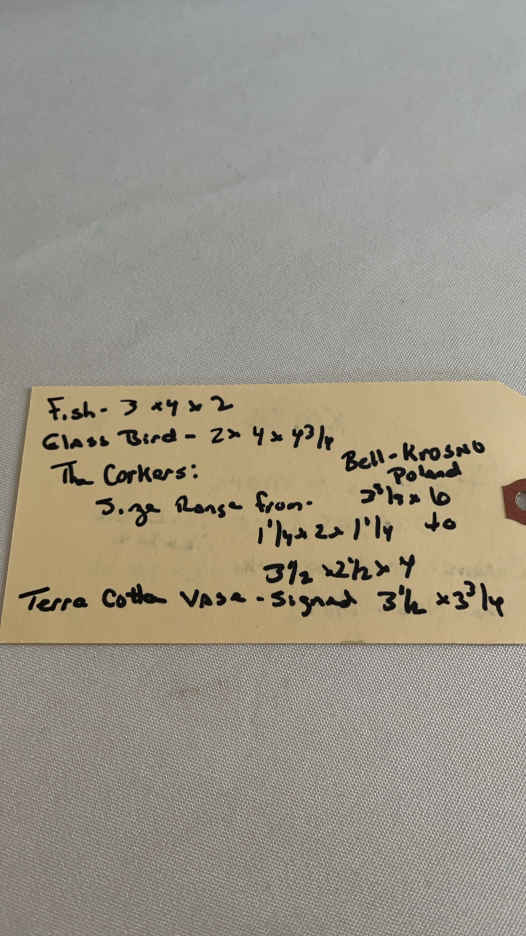 Fish - 3 x 4 x 2
Glass Bird - 2 x 4 x 4 3/4
Bell - Krosno
Poland
x 6
The Corkers:
Size Range from -
1 1/4 x 2 x 1 1/4 to
3 1/2 x 2 1/2 x 4
Terra Cotta Vase - Signed 3 1/2 x 3 3/4